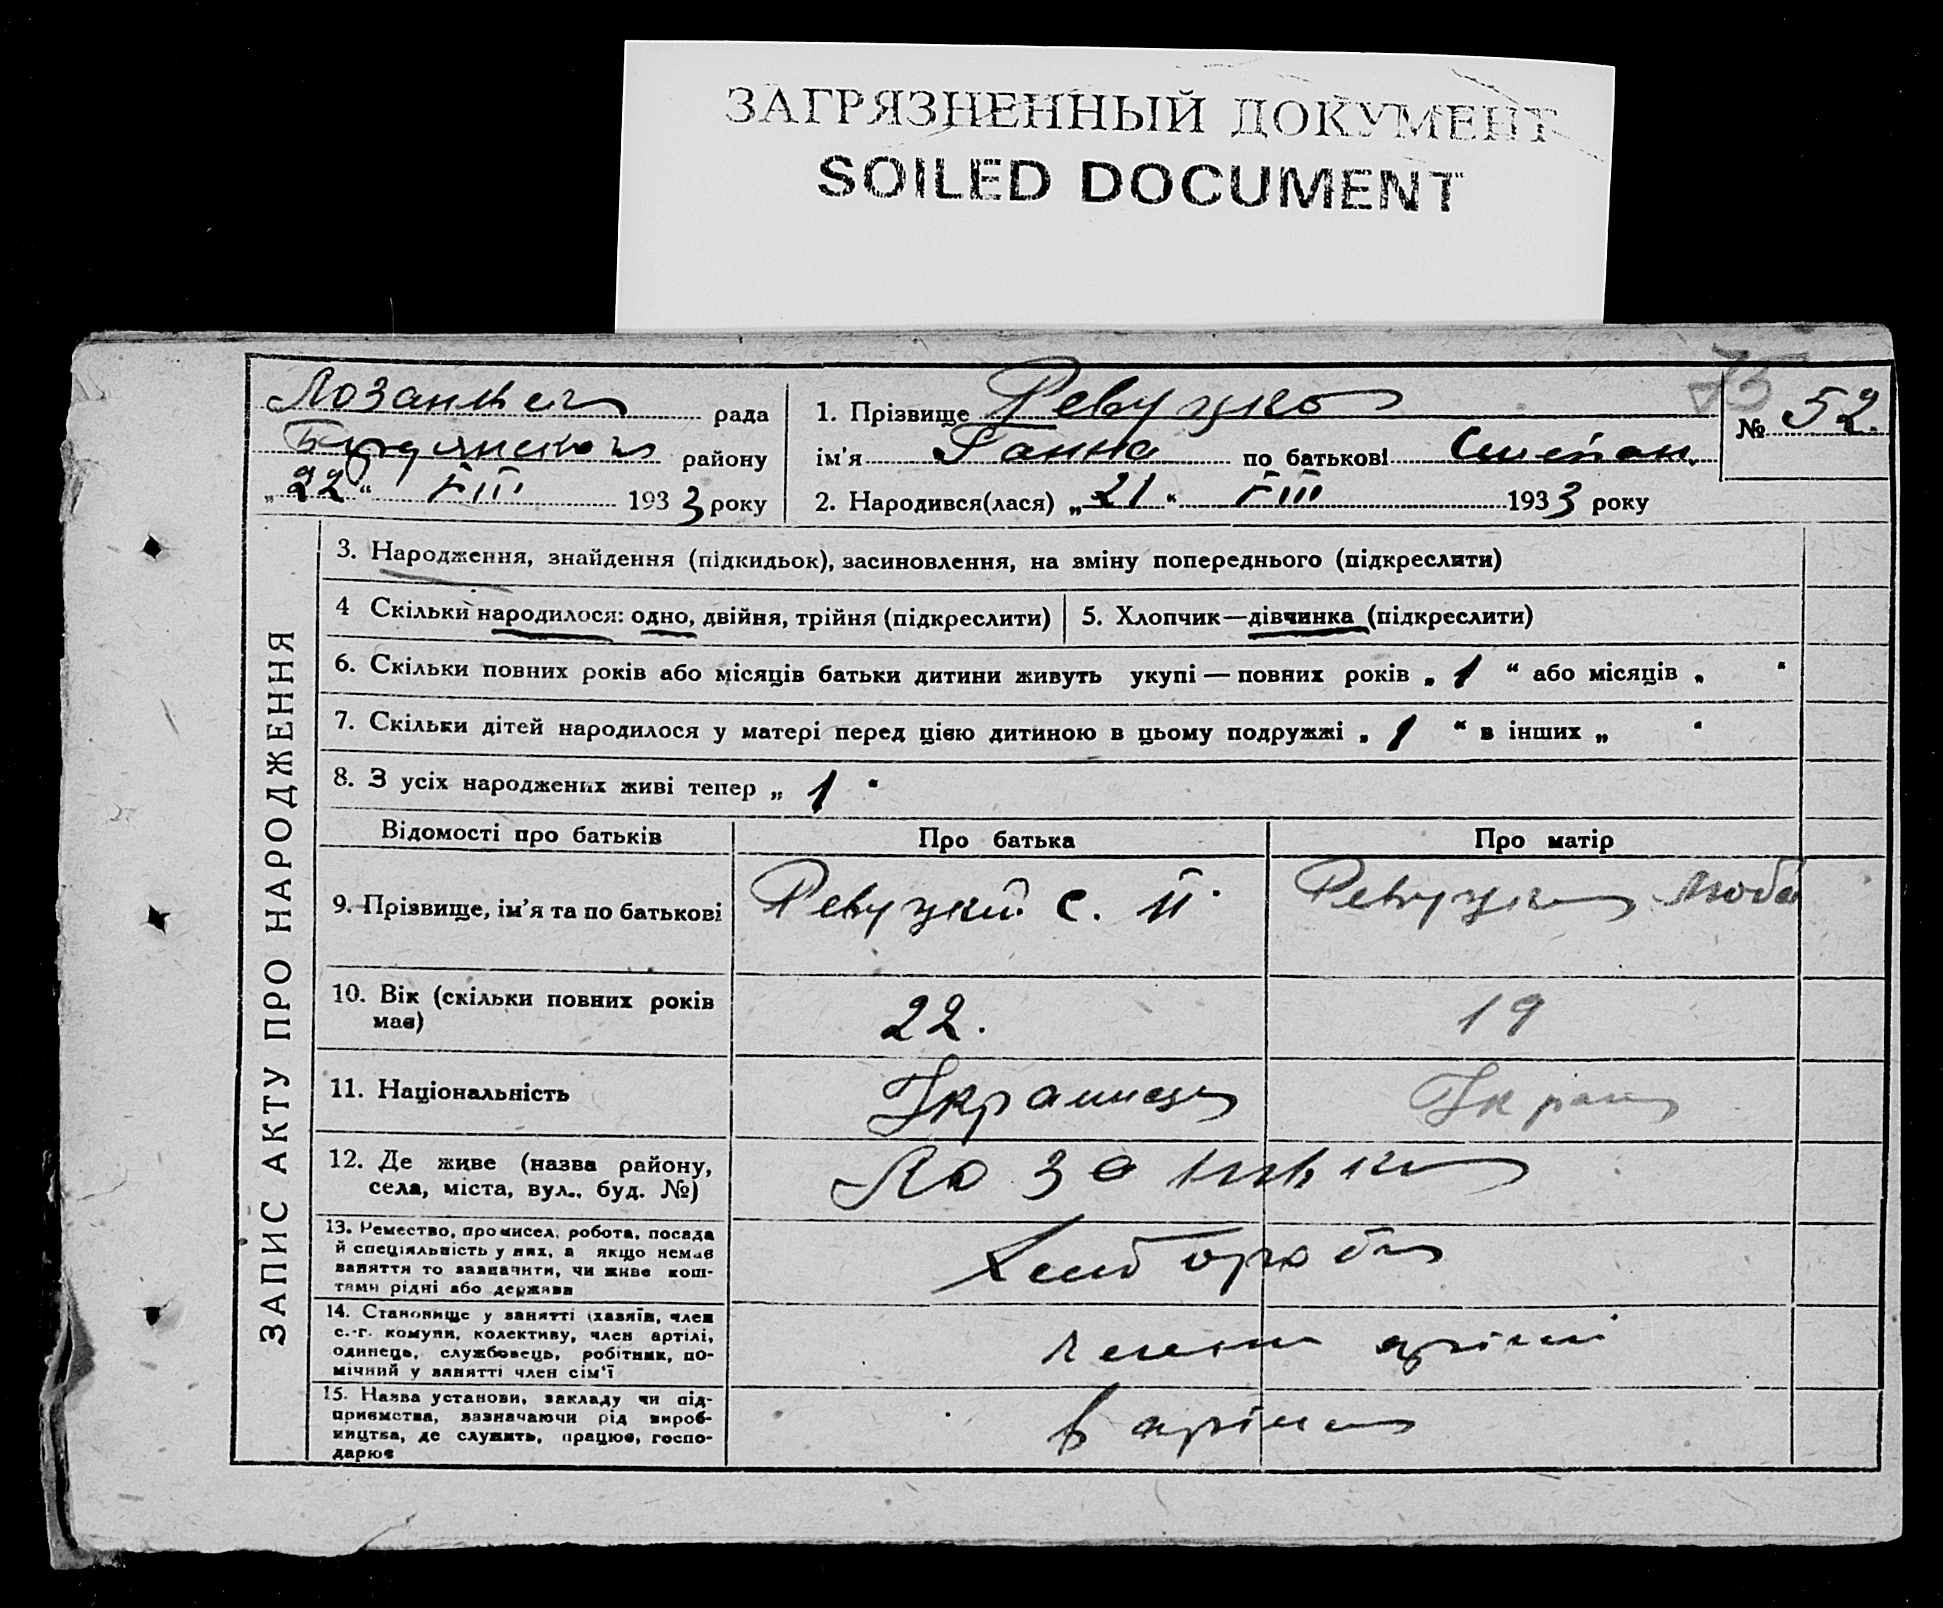 ЗАГРЯЗНЕННЫЙ ДОКУМЕНТ
SOILED DOCUMENT
75
№ 52.
рада
району
„22“ VIII 1933 року
1. Прізвище Ревуцко
ім'я Ганна по батькові Степан.
2. Народився(лася) „21“ VIII 1933 року
ЗАПИС АКТУ ПРО НАРОДЖЕННЯ
3. Народження, знайдення (підкидьок), засиновлення, на зміну попереднього (підкреслити)
4 Скільки народилося: одно, двійня, трійня (підкреслити)
5. Хлопчик—дівчинка (підкреслити)
6. Скільки повних років або місяців батьки дитини живуть укупі — повних років „ 1 “ або місяців „ “
7. Скільки дітей народилося у матері перед цією дитиною в цьому подружжі „ 1 “ в інших „ “
8. З усіх народжених живі тепер „ 1 “
Відомості про батьків Про батька Про матір
9. Прізвище, ім'я та по батькові Ревуцкий С. Люба
10. Вік (скільки повних років
має) 22. 19
11. Національність Украинець Україн
12. Де живе (назва району,
села, міста, вул., буд. №)
13. Ремество, промисел, робота, посада
й спеціяльність у них, а якщо немає
заняття то зазначити, чи живе кош-
тами рідні або держави
Хлібороби
14. Становище у занятті (хазяїн, член
с.-г. комуни, колективу, член артілі,
одинець, службовець, робітник, по-
мічний у занятті член сім'ї
члени артілі
15. Назва установи, закладу чи під-
приємства, зазначаючи рід вироб-
ництва, де служить, працює, госпо-
дарює
в артілі